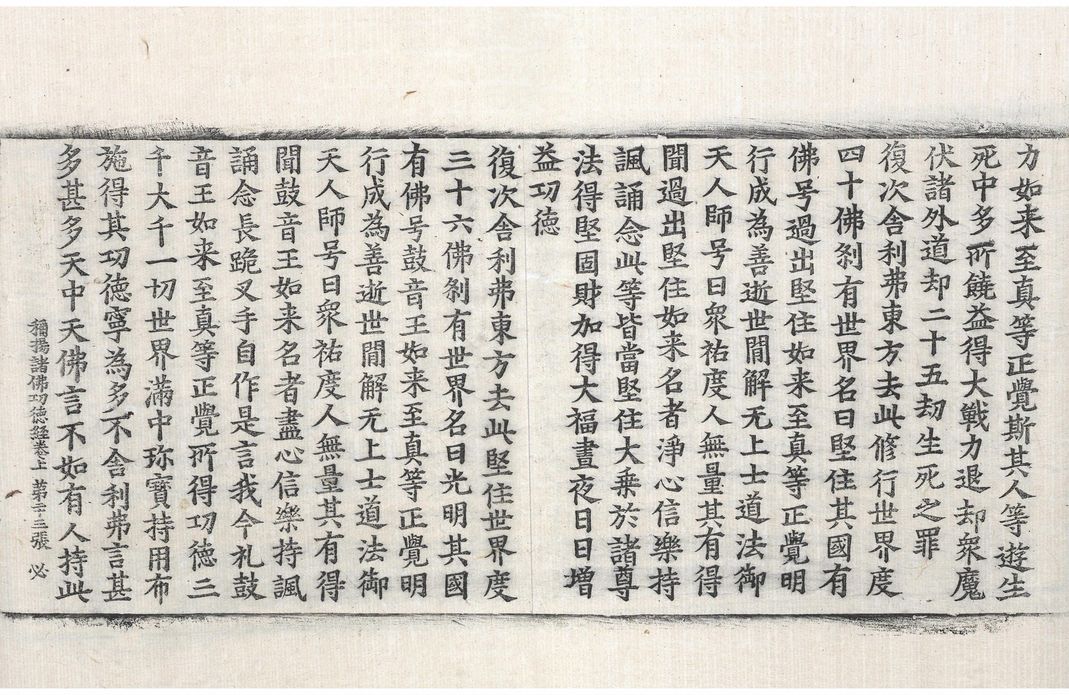 力如来至真等正覺斯其人等遊生
死中多所饒益得大戰力退却衆魔
伏諸外道却二十五劫生死之罪
復次舍利弗東方去此修行世界度
四十佛剎有世界名曰堅住其國有
佛号過出堅住如来至真等正覺明
行成為善逝世間解无上士道法御
天人師号曰衆祐度人無量其有得
聞過出堅住如来名者淨心信樂持
諷誦念此等皆當堅住大乗於諸尊
法得堅固財加得大福晝夜日日增
益功德
復次舍利弗東方去此堅住世界度
三十六佛剎有世界名曰光明其國
有佛号鼓音王如来至真等正覺明
行成為善逝世間解无上士道法御
天人師号曰衆祐度人無量其有得
聞鼓音王如来名者盡心信樂持諷
誦念長跪叉手自作是言我今礼鼓
音王如来至真等正覺所得功德三
千大千一切世界滿中珎寶持用布
施得其功德寧為多不舍利弗言甚
多甚多天中天佛言不如有人持此
稱揚諸佛功德經卷上 第二十三張 必